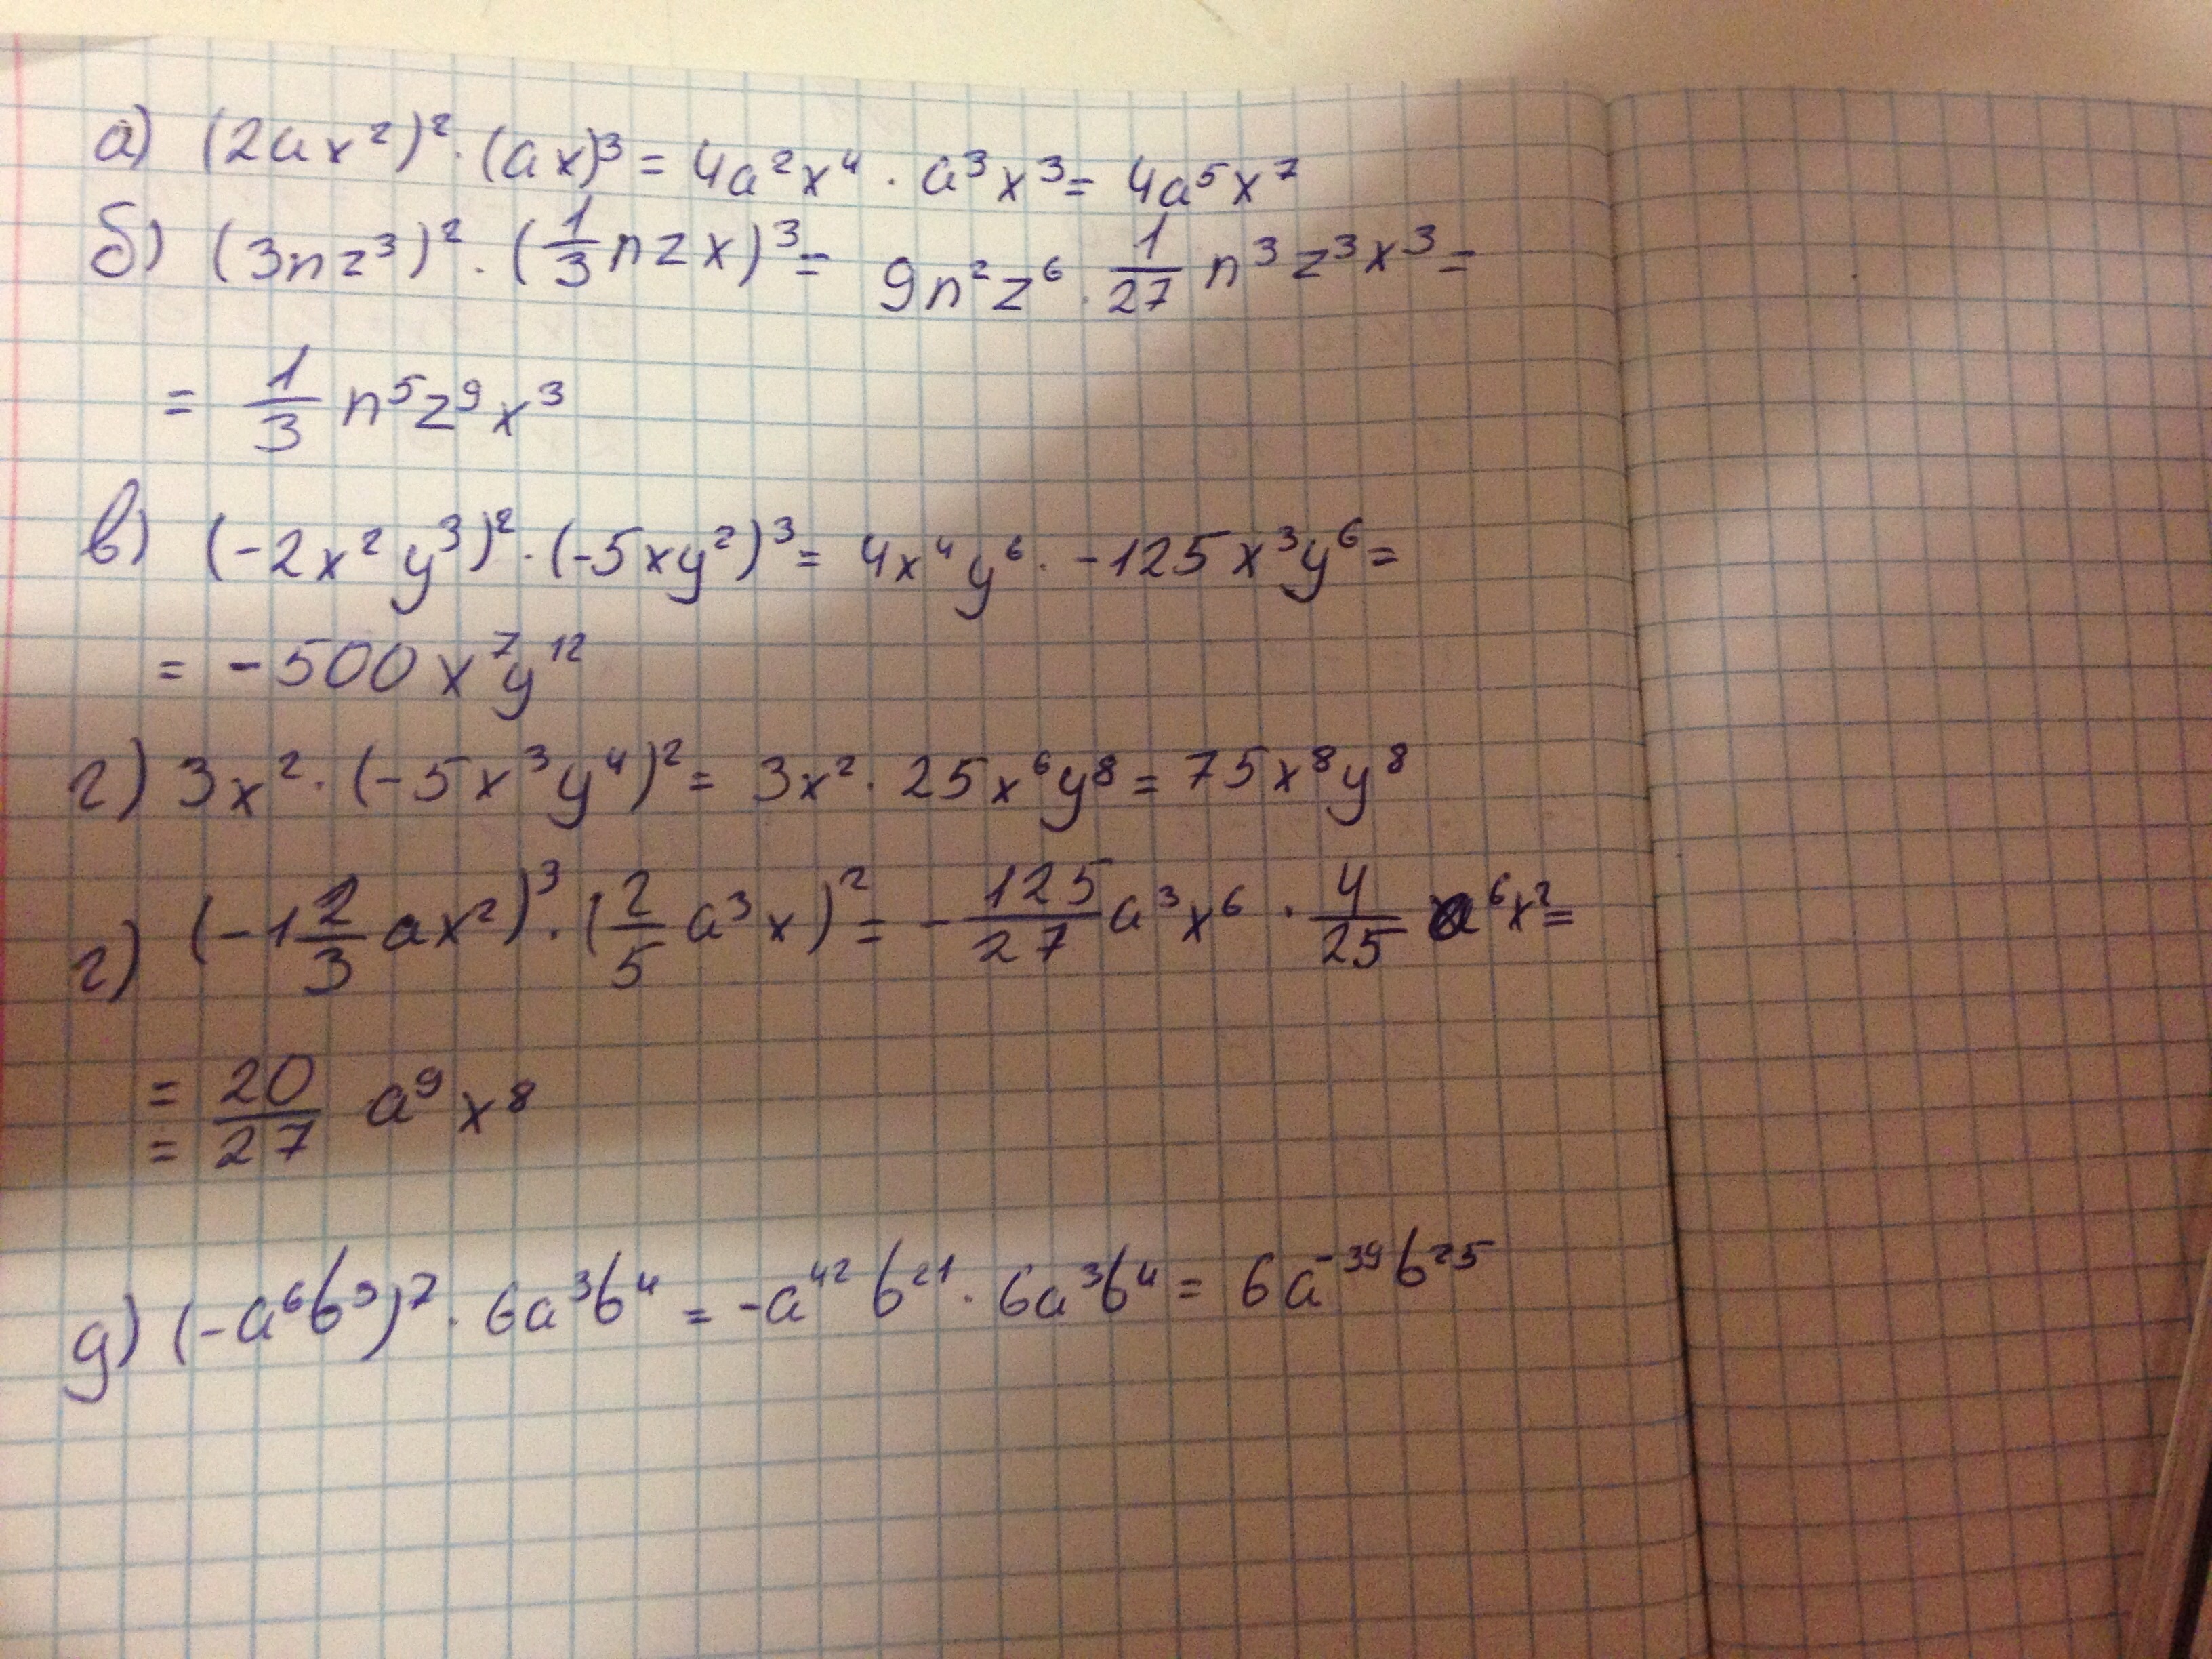 а) (2ax²)² · (ax)³ = 4a²x⁴ · a³x³ = 4a⁵x⁷
б) (3nz³)² · (1/3 nzx)³ = 9n²z⁶ · 1/27 n³z³x³ =
= 1/3 n⁵z⁹x³
в) (-2x²y³)² · (-5xy²)³ = 4x⁴y⁶ · -125x³y⁶ =
= -500x⁷y¹²
г) 3x² · (-5x³y⁴)² = 3x² · 25x⁶y⁸ = 75x⁸y⁸
г) (-1 2/3 ax²)³ · (2/5 a³x)² = -125/27 a³x⁶ · 4/25 a⁶x² =
= 20/27 a⁹x⁸
=
д) (-a⁶b³)⁷ · 6a³b⁴ = -a⁴²b²¹ · 6a³b⁴ = 6a⁻³⁹b²⁵